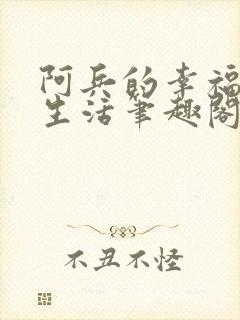 阿兵的幸福
生活笔趣阁
不丑不怪